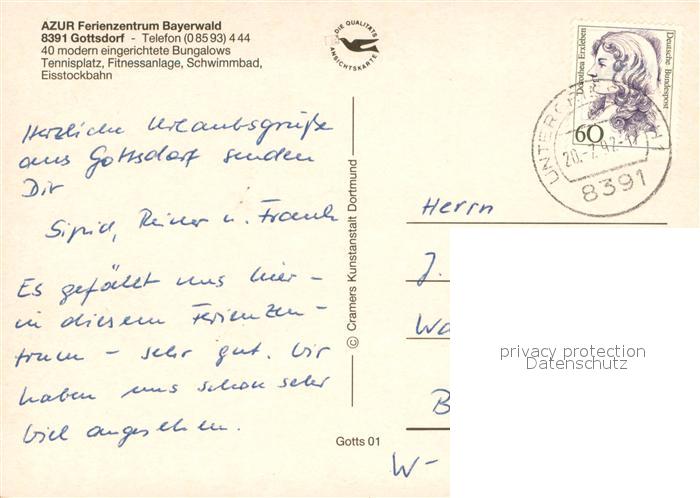 AZUR Ferienzentrum Bayerwald
8391 Gottsdorf - Telefon (0 85 93) 4 44
40 modern eingerichtete Bungalows
Tennisplatz, Fitnessanlage, Schwimmbad,
Eisstockbahn
DIE QUALITÄTS
ANSICHTSKARTE
Dorothea Erxleben
Deutsche Bundespost
60
20.-7.92-17
8391
Herzliche Urlaubsgrüße
aus Gottsdorf senden
Dir
Sigrid, Reiner u. Frank
Es gefällt uns hier -
in diesem Ferienzen-
trum - sehr gut. Wir
haben uns schon sehr
viel angesehen.
© Cramers Kunstanstalt Dortmund
Gotts 01
Herrn
J.
Wa
B
W-
privacy protection
Datenschutz